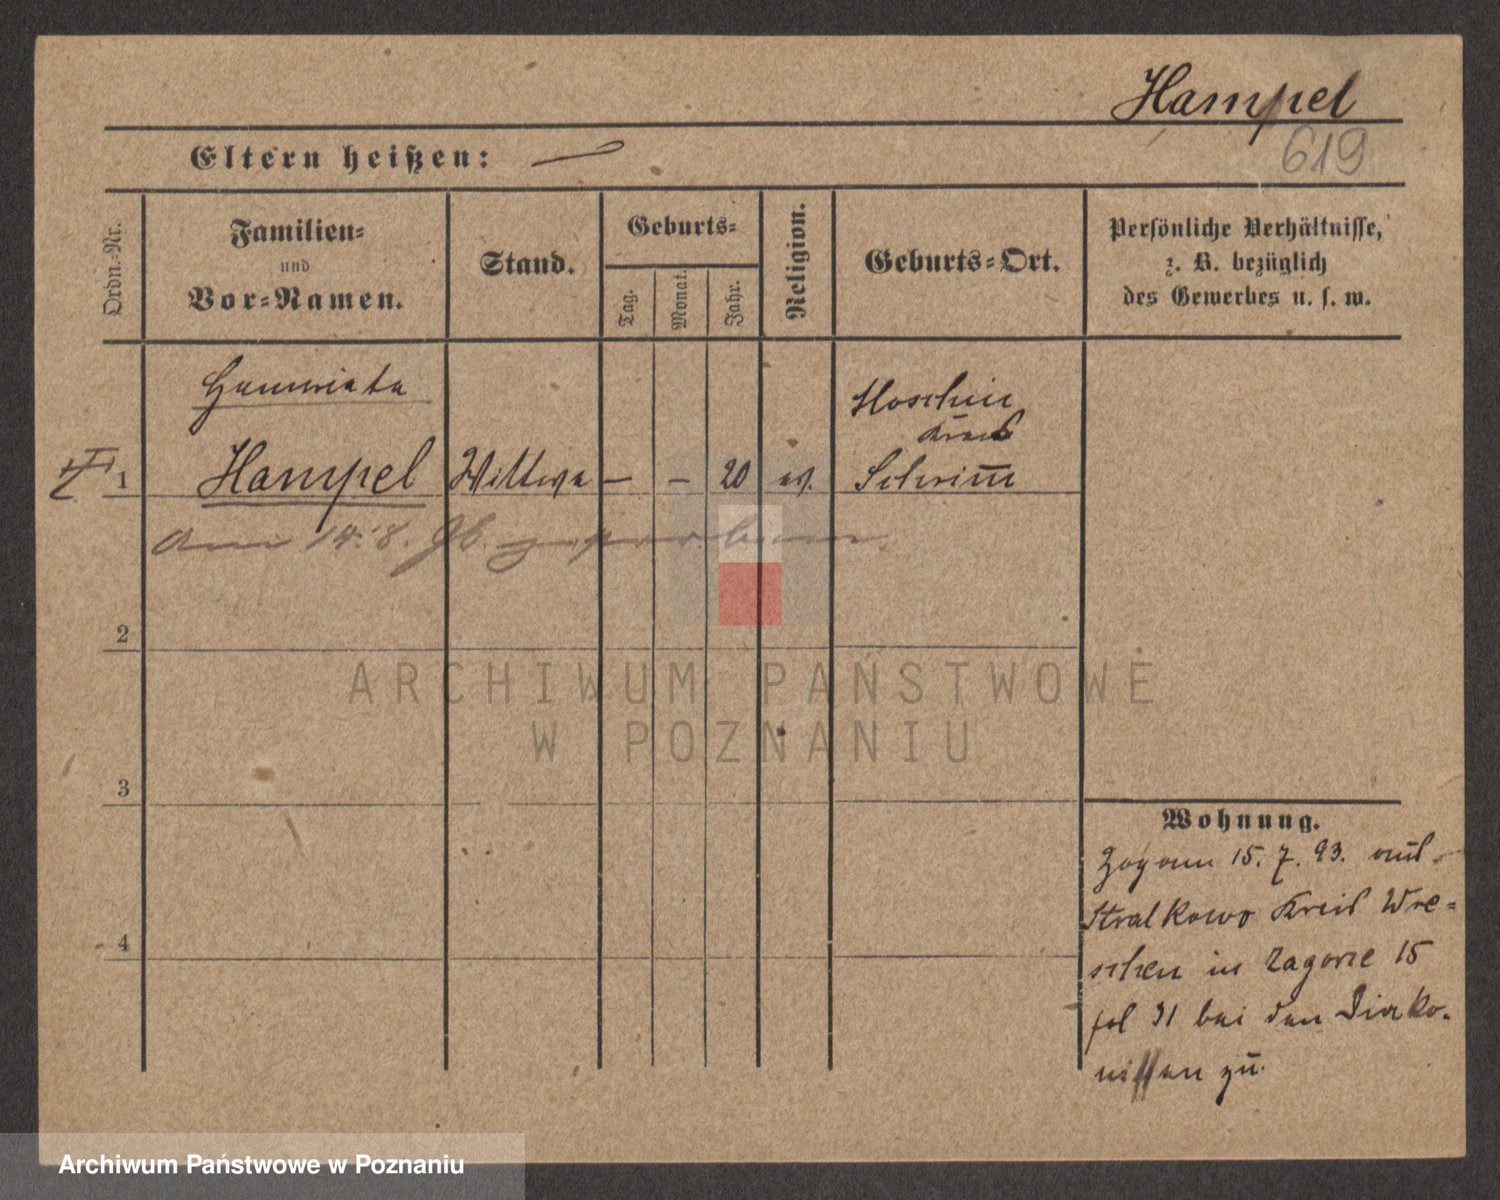 Hampel
619
Eltern heißen: —
Ordn.-Nr.
Familien-
und
Vor-Namen.
Stand.
Geburts-
Tag.
Monat.
Jahr.
Religion.
Geburts-Ort.
Persönliche Verhältnisse,
z. B. bezüglich
des Gewerbes u. s. w.
Henrieta
Hampel
1
Wittwe
—
—
20
ev.
Moschin
Kreis
Schrimm
am 14. 8. 96. gestorben.
2
3
4
Wohnung.
Zog am 15. 7. 93. aus
Stralkowo Kreis Wre-
schen in Zagorze 15
fol 31 bei den Diako-
nissen zu.
ARCHIWUM PAŃSTWOWE
W POZNANIU
Archiwum Państwowe w Poznaniu